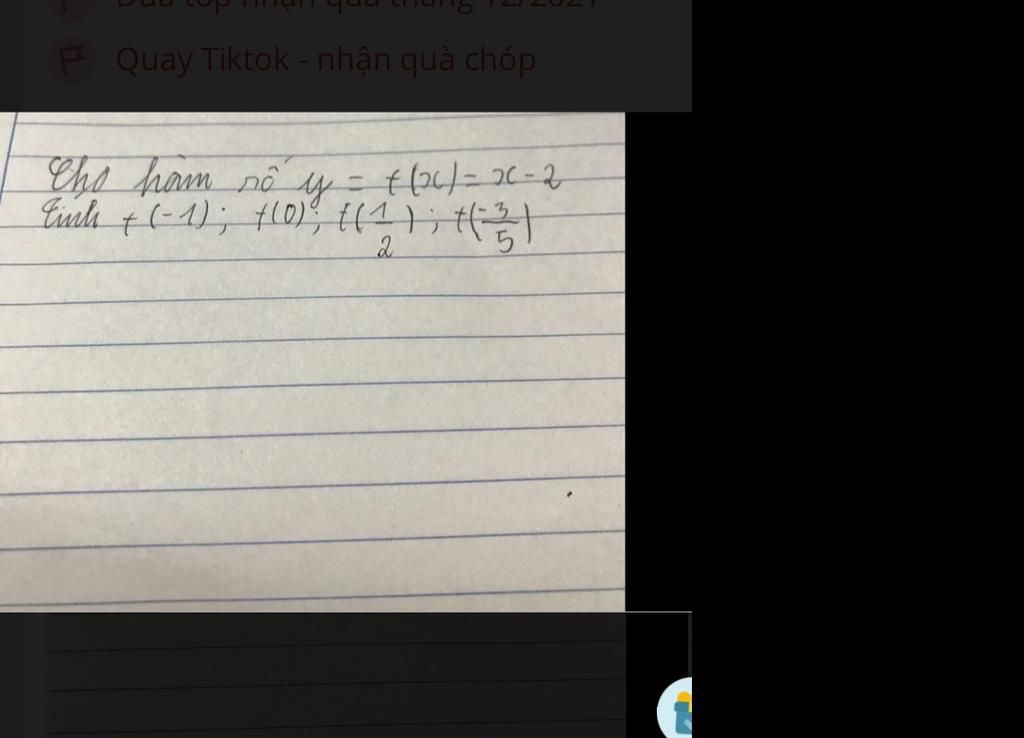 Đua top nhận quà tháng 12/2021
Quay Tiktok - nhận quà chóp
Cho hàm số y = f(x) = x - 2
Tính f(-1); f(0); f(1/2); f(-3/5)